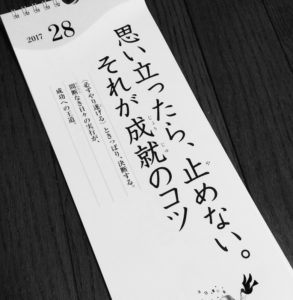 2017 28
思い立ったら、止めない。
それが成就のコツ
「必ずやり遂げる」ときっぱり、決断する。
間断なき日々の実行が、
成功への王道。